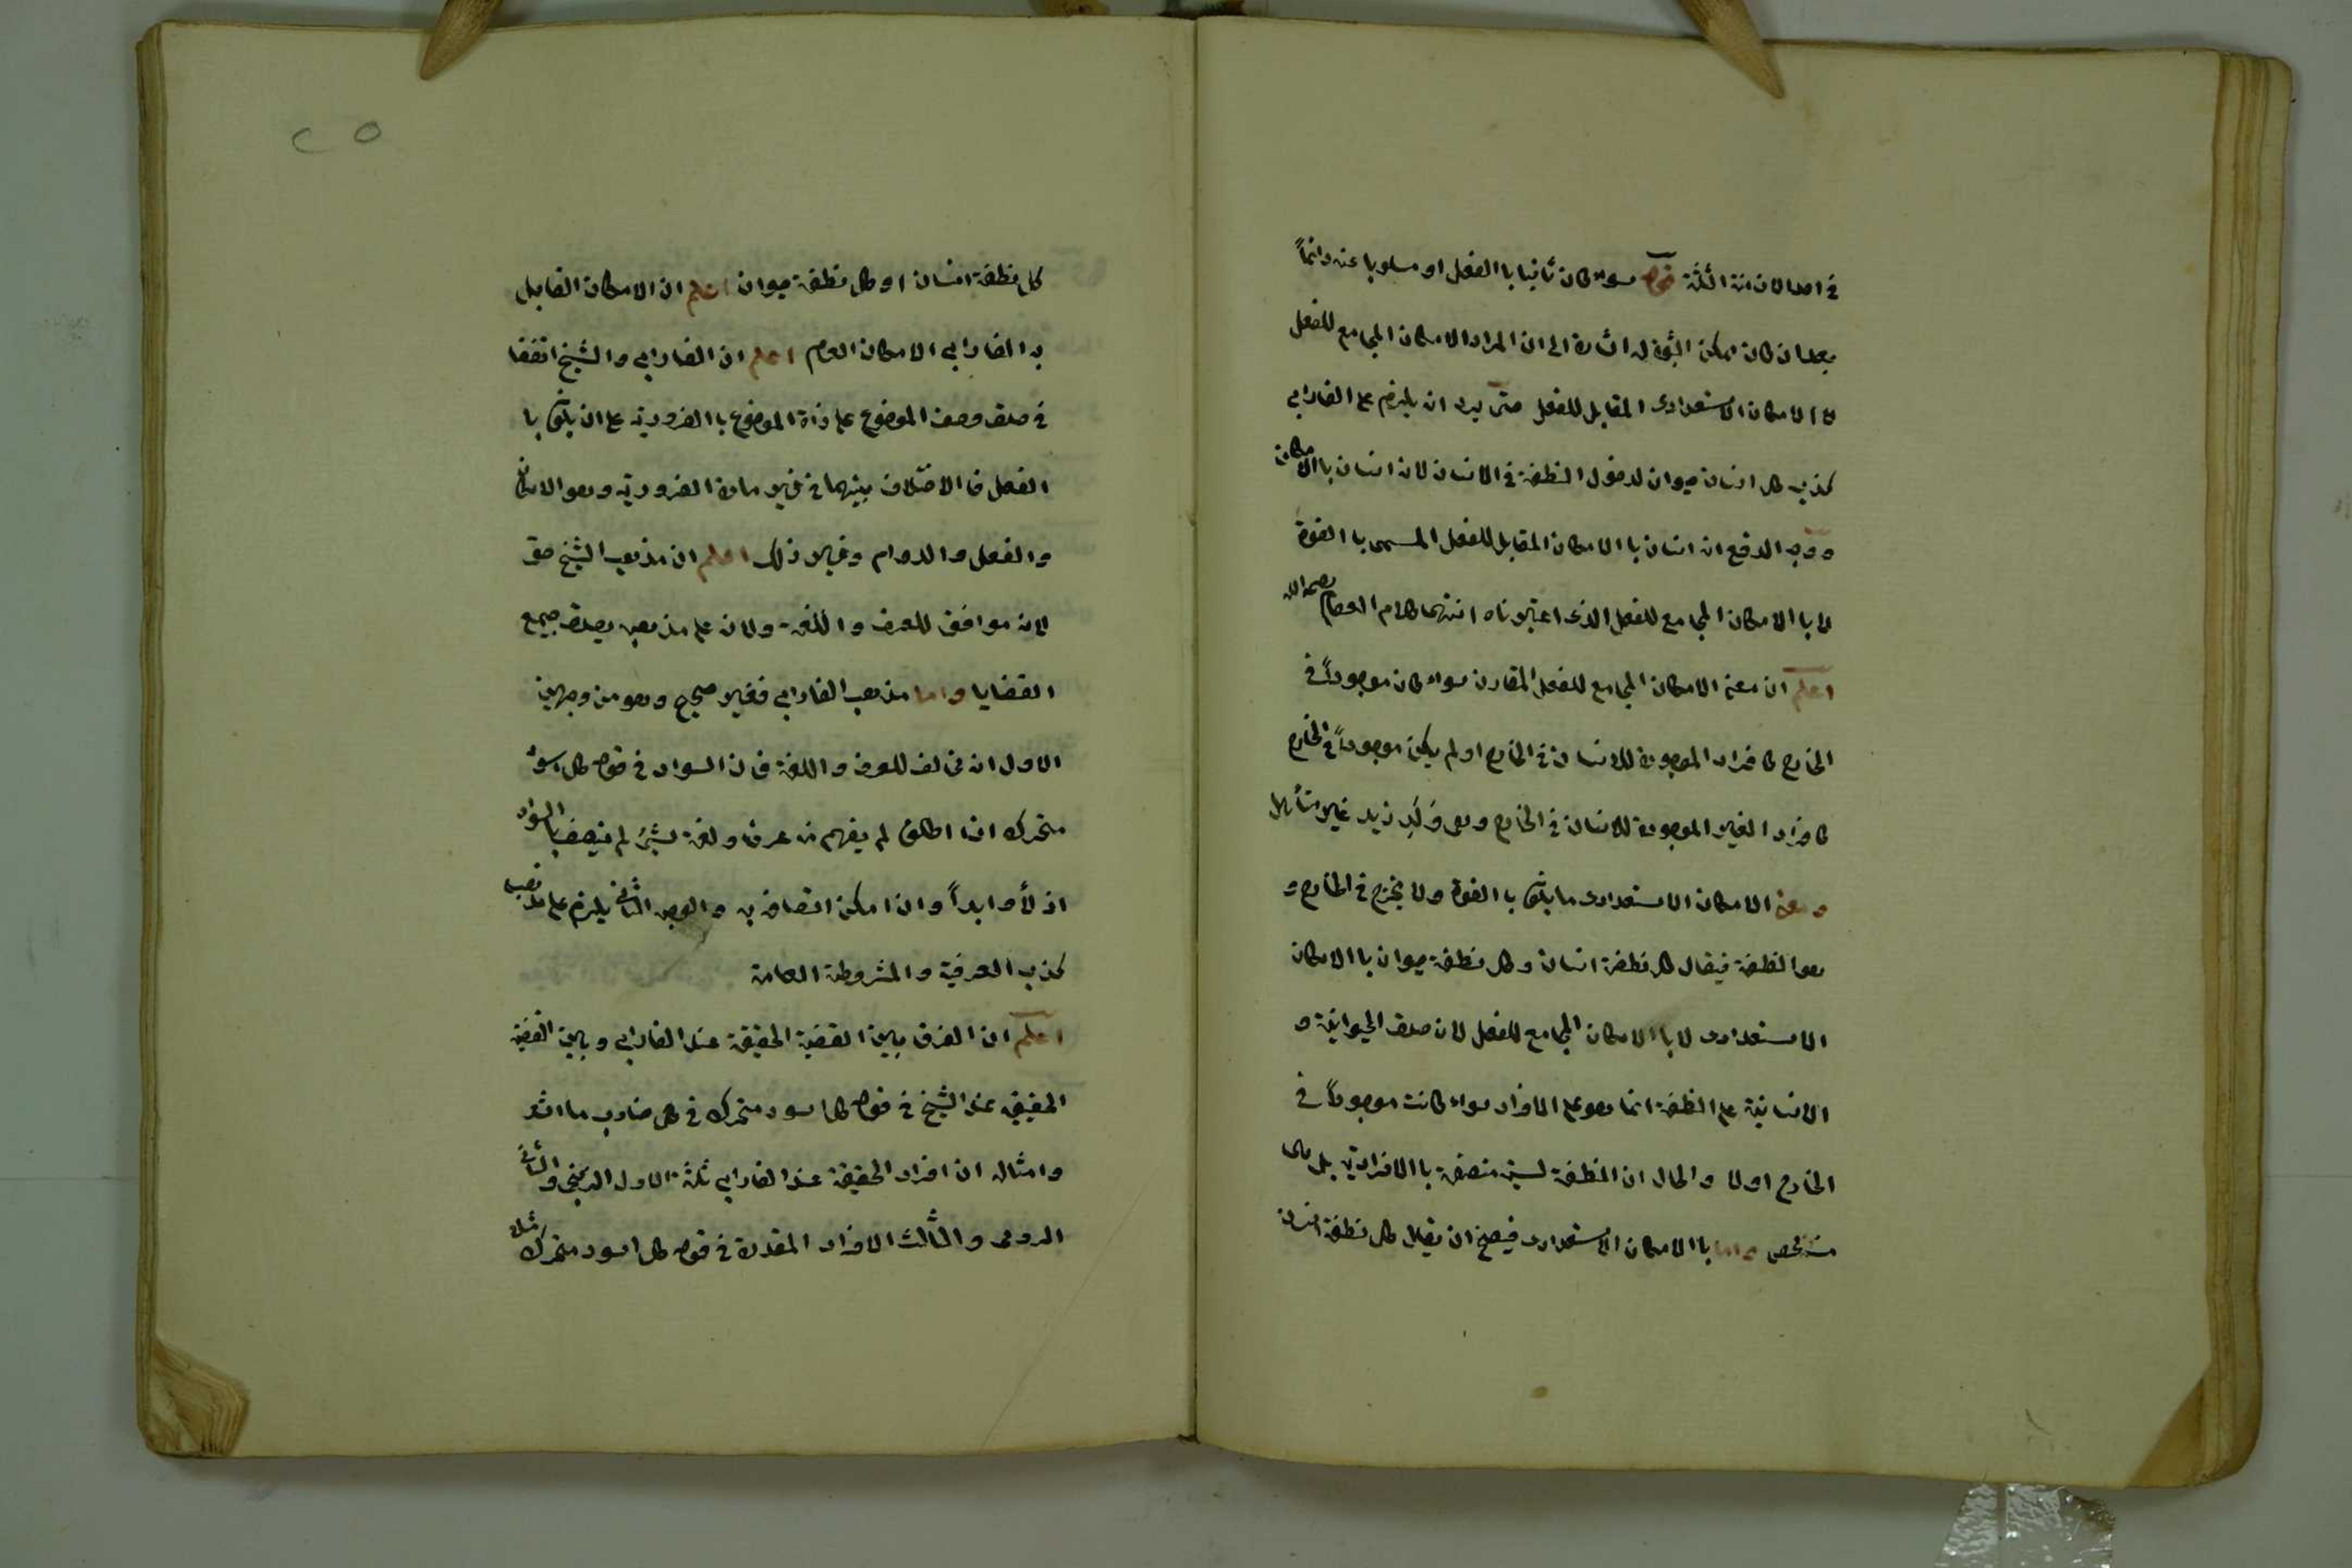 في احد الازمنة الثلثة قوله سواء كان ثابتا با الفعل او مسلوبا عنه دائماً
بعد ان كان ممكن الثبوت له اشارة الى ان المراد الامكان المجامع للفعل
لا الامكان الاستعدادى المقابل للفعل حتى يرد ان يلزم على الفارابى
كذب كل انسان حيوان لدخول النطفة في الانسان لان انسان با الامكان
ووجه الدفع ان انسان با الامكان المقابل للفعل المسمى با القوة
لا با الامكان المجامع للفعل الذى اعتبرناه انتهى كلام العصام رحمه الله
اعلم ان معنى الامكان المجامع للفعل المقارن سواء كان موجوداً في
الخارج كافراد الموجودة للانسان في الخارج او لم يكن موجوداً في الخارج
كافراد الغير الموجودة للانسان في الخارج وهى وَلَدِ زيد غير متأهل
ومعنى الامكان الاستعدادى ما يكون با القوة ولا يخرج في الخارج و
هو النطفة فيقال كل نطفة انسان وكل نطفة حيوان با الامكان
الاستعدادى لا با الامكان المجامع للفعل لان صدق الحيوانية و
الانسانية على النطفة انما هو على الافراد سواء كانت موجوداً في
الخارج اولا والحال ان النطفة ليست متصفة با الافرادية بل هى
شخص واما با الامكان الاستعدادى فيصح ان يقال كل نطفة انسان
٢٥
كل نطفة انسان او كل نطفة حيوان اعلم ان الامكان القابل
به الفارابى الامكان العام اعلم ان الفارابى والشيخ اتفقا
في صدق وصف الموضوع على ذاة الموضوع با الضرورية على ان يكون با
الفعل فا الاختلاف بينهما في غير مادة الضرورية وهو الامكان
والفعل والدوام وغير ذلك اعلم ان مذهب الشيخ حق
لانه موافق للعرف واللغة ولان على مذهبه يصدق جميع
القضايا واما مذهب الفارابى فغير صحيح وهو من وجهين
الاول انه مخالف للعرف واللغة فان السواد في قوله كل اسود
متحرك اذا اطلق لم يفهم منه عرفا ولغة شئ لم يتصف با السواد
ازلاً وابداً وان امكن اتصافه به والوجه الثانى يلزم على مذهبه
كذب العرفية والمشروطة العامة
اعلم ان الفرق بين القضية الحقيقة عند الفارابى وبين القضية
الحقيقى عند الشيخ في قوله كل اسود متحرك في
وامثاله ان افراد الحقيقة عند الفارابى ثلثة الاول الزنجى والثانى
الرومى والثالث الافراد المقدرة في قوله كل اسود متحرك مثلا